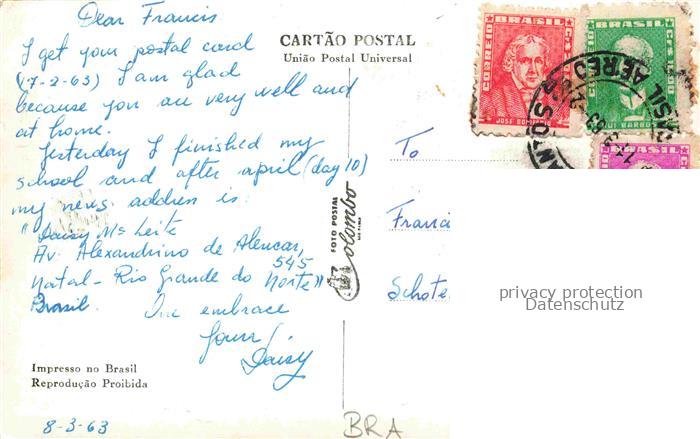 Dear Francis
I get your postal card
(17-2-63) I am glad
because you are very well and
at home.
Yesterday I finished my
school and after april (day 10)
my news address is:
"Daisy Mc Leite
Av: Alexandrino de Alencar,
545
Natal - Rio Grande do Norte"
Brasil. One embrace
Yours!
Daisy
Impresso no Brasil
Reprodução Proibida
8-3-63
CARTÃO POSTAL
União Postal Universal
FOTO POSTAL
Colombo
BRA
BRASIL CORREIO
JOSÉ BONIFACIO
BRASIL CORREIO
RUI BARBOSA
BRASIL
SANTOS
AEREO
To
Franci
Schote
privacy protection
Datenschutz